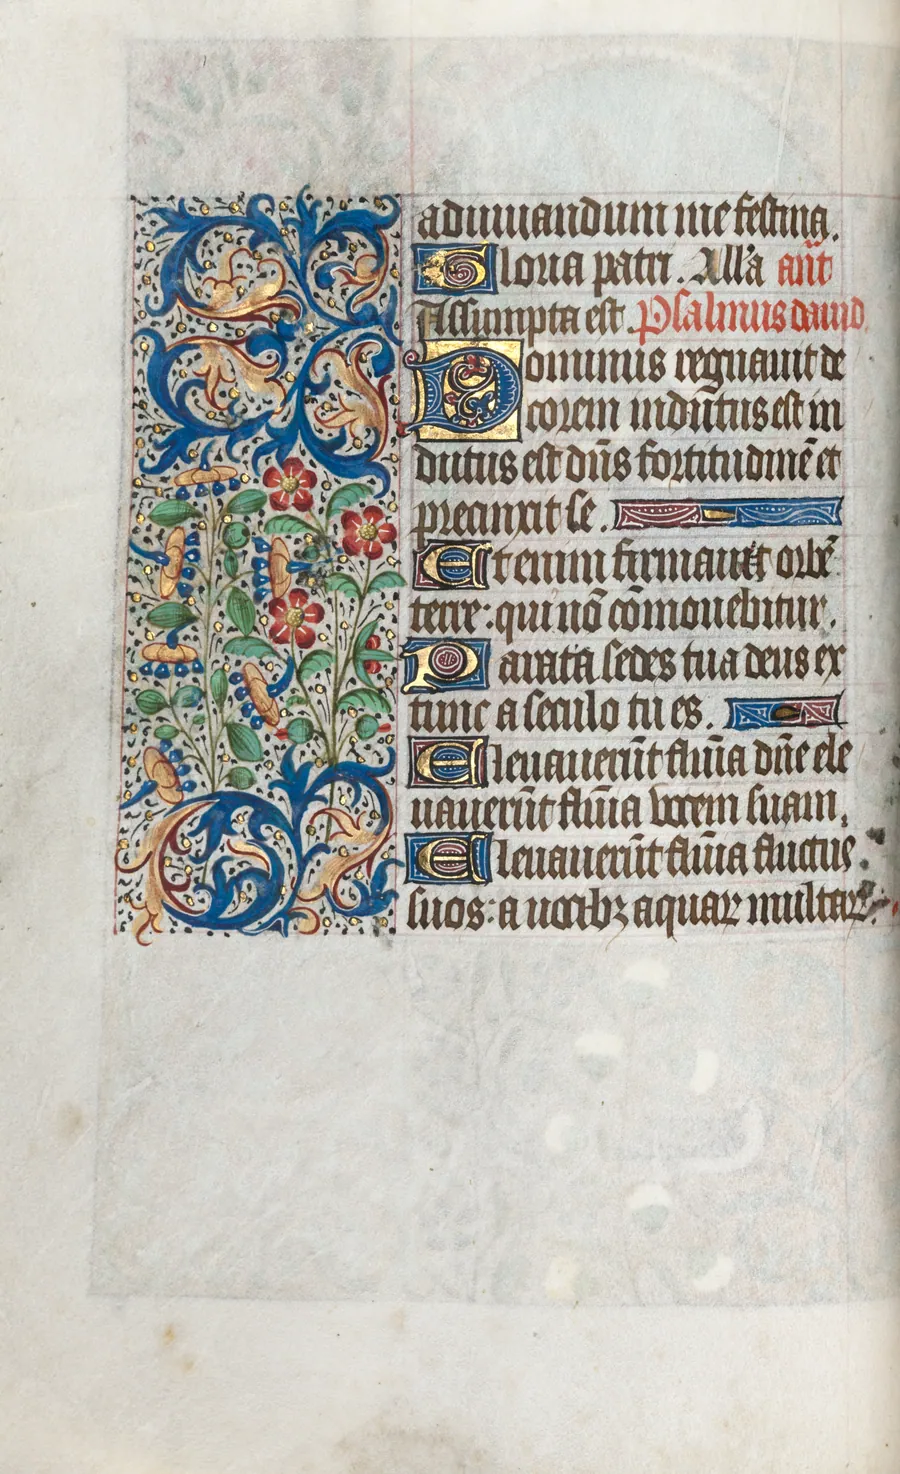 adiuuandum me festina.
Gloria patri. All'a añt
Assumpta est. Psalmus dauid
Dominus regnauit de
corem indũtus est in
dutus est dñs fortitudinẽ et
precinxit se.
Etenim firmauit orbẽ
terre: qui nõ cõmouebitur.
Parata sedes tua deus ex
tunc a seculo tu es.
Eleuauerũt flũia dñe ele
uauerũt flũia vocem suam.
Eleuauerũt flũia fluctus
suos: a uocibꝫ aquaꝝ multaꝝ.